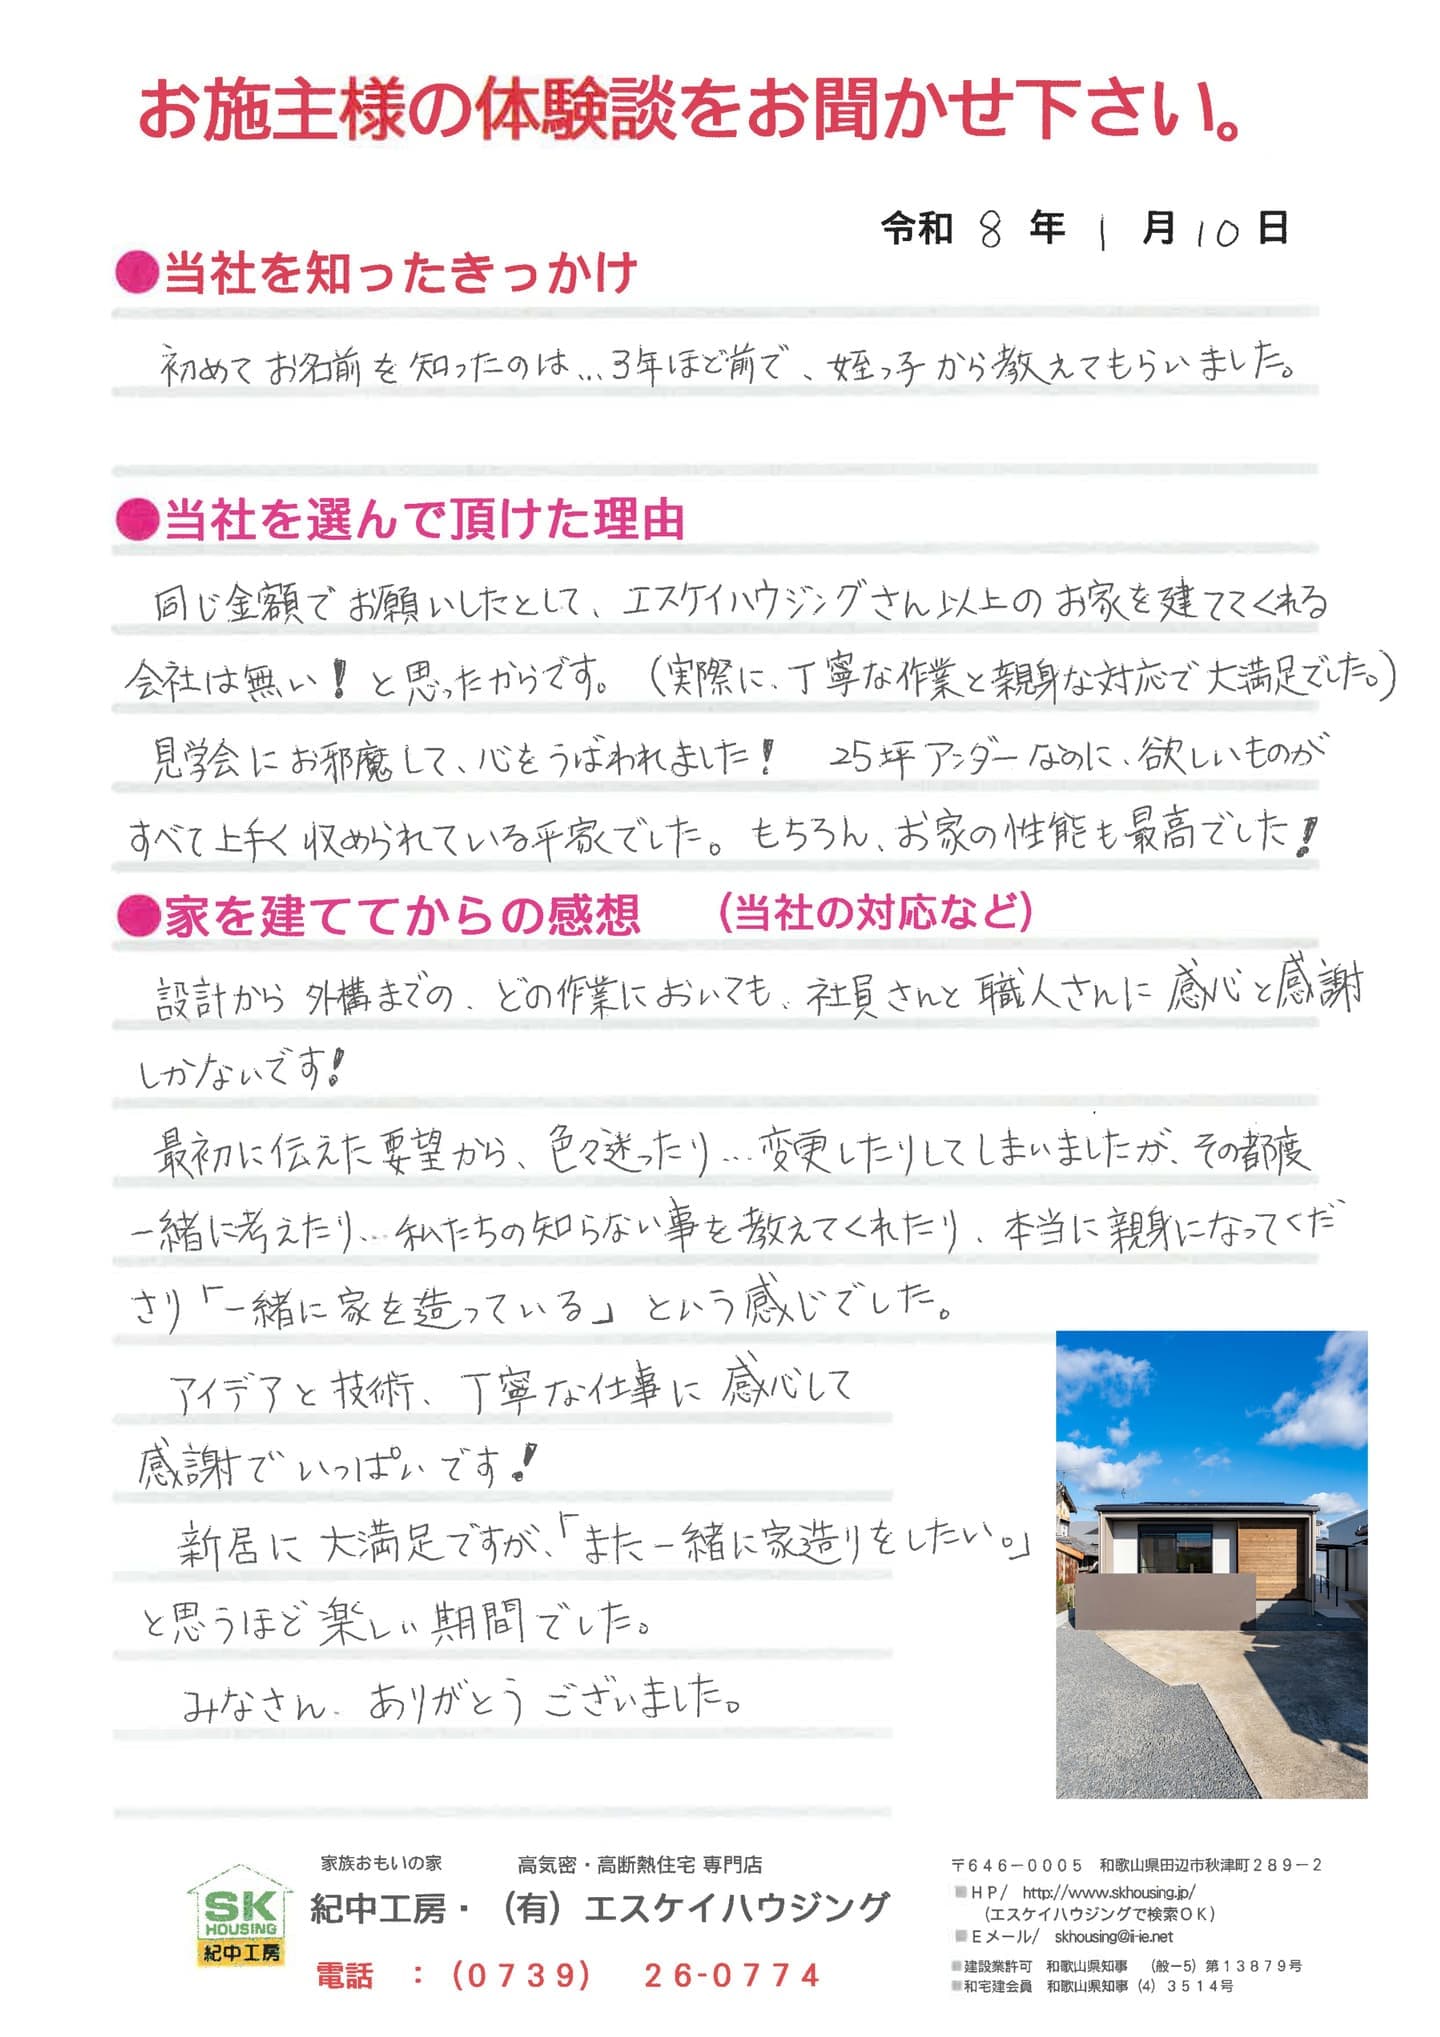 お施主様の体験談をお聞かせ下さい。
令和 8 年 1 月 10 日
●当社を知ったきっかけ
初めてお名前を知ったのは…3年ほど前で、姪っ子から教えてもらいました。
●当社を選んで頂けた理由
同じ金額でお願いしたとして、エスケイハウジングさん以上のお家を建ててくれる
会社は無い！と思ったからです。（実際に、丁寧な作業と親身な対応で大満足でした。）
見学会にお邪魔して、心をうばわれました！ 25坪アンダーなのに、欲しいものが
すべて上手く収められている平家でした。もちろん、お家の性能も最高でした！
●家を建ててからの感想 （当社の対応など）
設計から外構までの、どの作業においても、社員さんと職人さんに感心と感謝
しかないです！
最初に伝えた要望から、色々迷ったり…変更したりしてしまいましたが、その都度
一緒に考えたり…私たちの知らない事を教えてくれたり、本当に親身になってくだ
さり「一緒に家を造っている」という感じでした。
アイデアと技術、丁寧な仕事に感心して
感謝でいっぱいです！
新居に大満足ですが、「また一緒に家造りをしたい。」
と思うほど楽しい期間でした。
みなさん、ありがとうございました。
家族おもいの家 高気密・高断熱住宅 専門店
紀中工房・（有）エスケイハウジング
電話 ：（0739） 26-0774
SK
HOUSING
紀中工房
〒646－0005 和歌山県田辺市秋津町289－2
■HP/ http://www.skhousing.jp/
（エスケイハウジングで検索OK）
■Eメール/ skhousing@ii-ie.net
■建設業許可 和歌山県知事 （般－5）第13879号
■和宅建会員 和歌山県知事（4）3514号